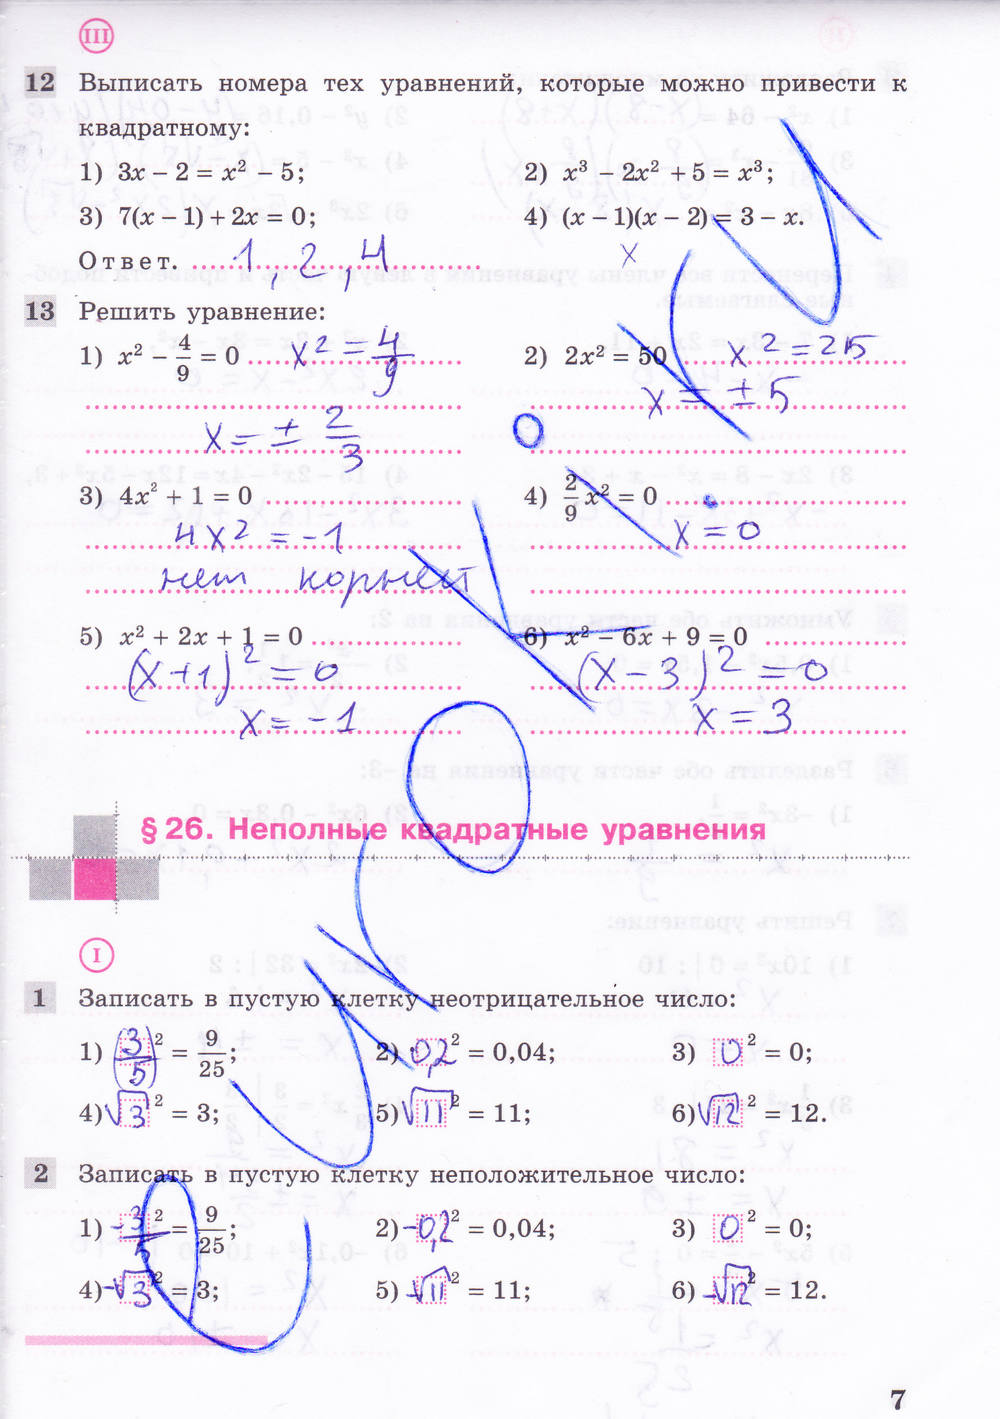 III
12 Выписать номера тех уравнений, которые можно привести к
квадратному:
1) 3x − 2 = x² − 5; 2) x³ − 2x² + 5 = x³;
3) 7(x − 1) + 2x = 0; 4) (x − 1)(x − 2) = 3 − x.
Ответ. 1, 2, 4 x
13 Решить уравнение:
1) x² − 4/9 = 0 x² = 4/9 2) 2x² = 50 x² = 25
x = ± 5
x = ± 2/3
3) 4x² + 1 = 0 4) 2/9 x² = 0
4x² = −1 x = 0
нет корней
5) x² + 2x + 1 = 0 6) x² − 6x + 9 = 0
(x + 1)² = 0 (x − 3)² = 0
x = −1 x = 3
§ 26. Неполные квадратные уравнения
I
1 Записать в пустую клетку неотрицательное число:
1) (3/5)² = 9/25; 2) 0,2² = 0,04; 3) 0² = 0;
4) √3² = 3; 5) √11² = 11; 6) √12² = 12.
2 Записать в пустую клетку неположительное число:
1) −3/5² = 9/25; 2) −0,2² = 0,04; 3) 0² = 0;
4) −√3² = 3; 5) −√11² = 11; 6) −√12² = 12.
7